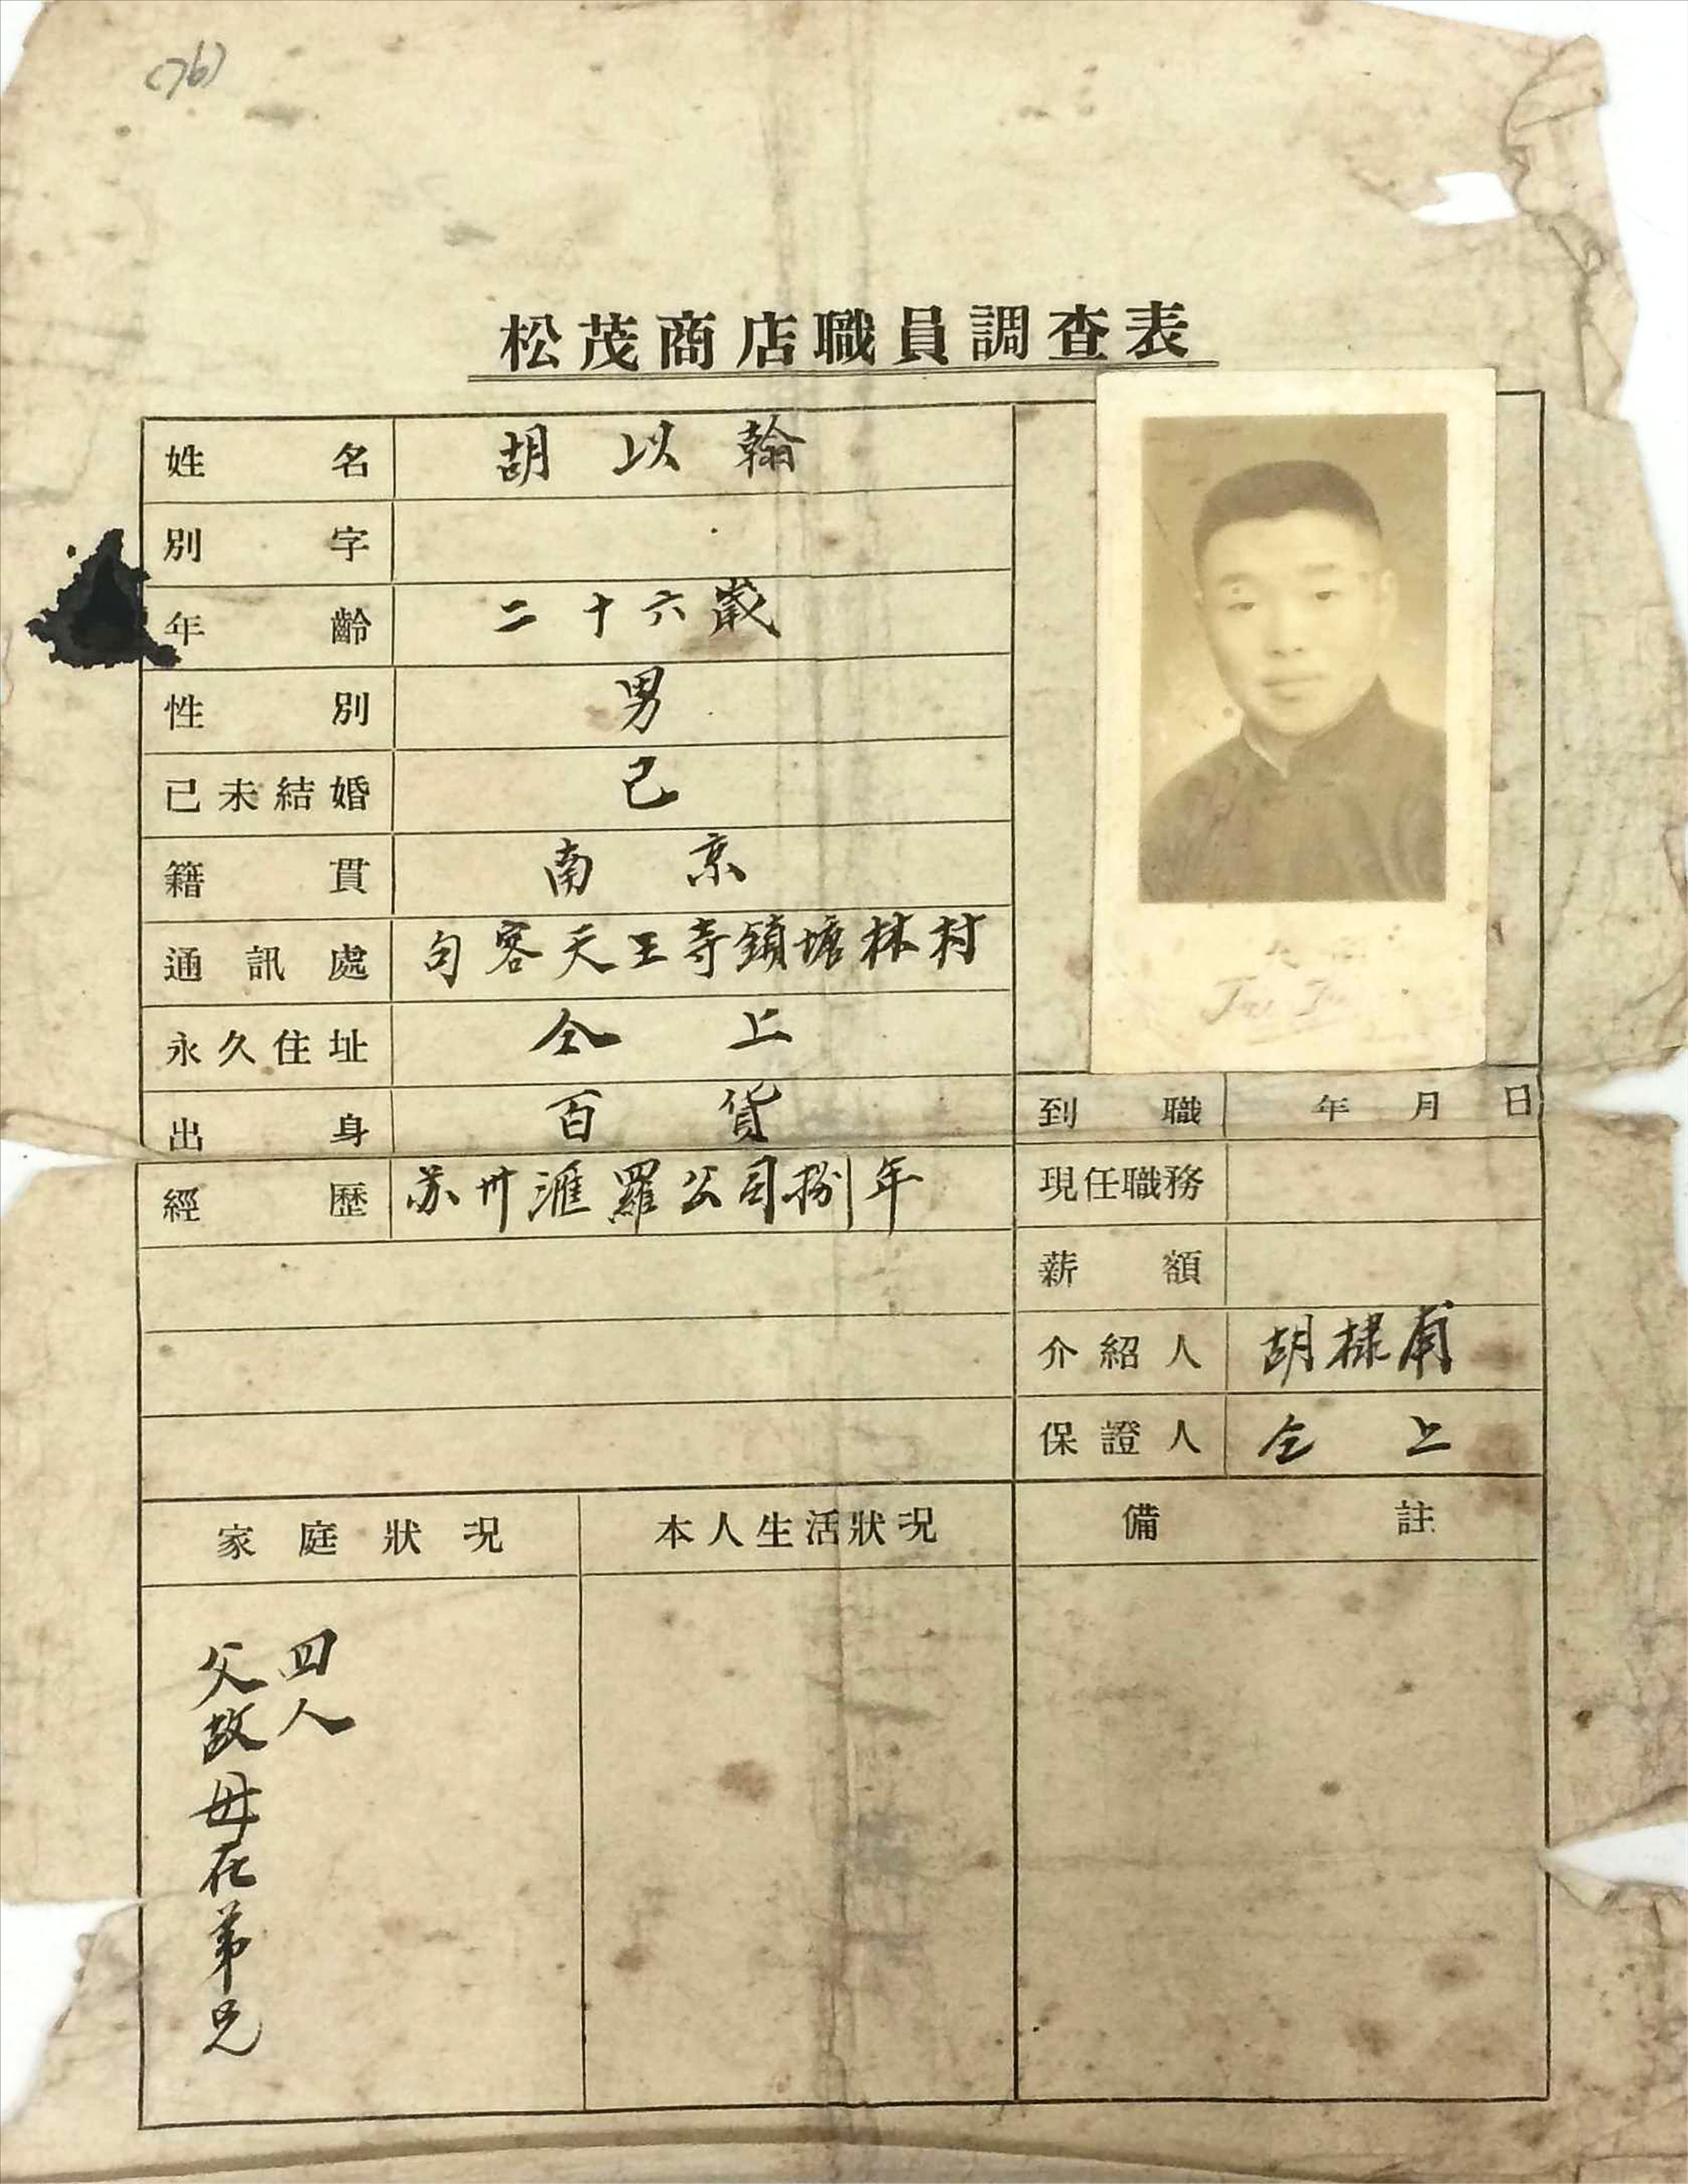 (76)
松茂商店職員調查表
姓名 胡以翰
別字
年齡 二十六歲
性別 男
已未結婚 已
籍貫 南京
通訊處 句容天王寺鎮塘林村
永久住址 仝上
出身 百貨
經歷 苏州滙羅公司捌年
到職 年 月 日
現任職務
薪額
介紹人 胡棣甫
保證人 仝上
家庭狀況
本人生活狀況
備註
四人
父故母在弟兄